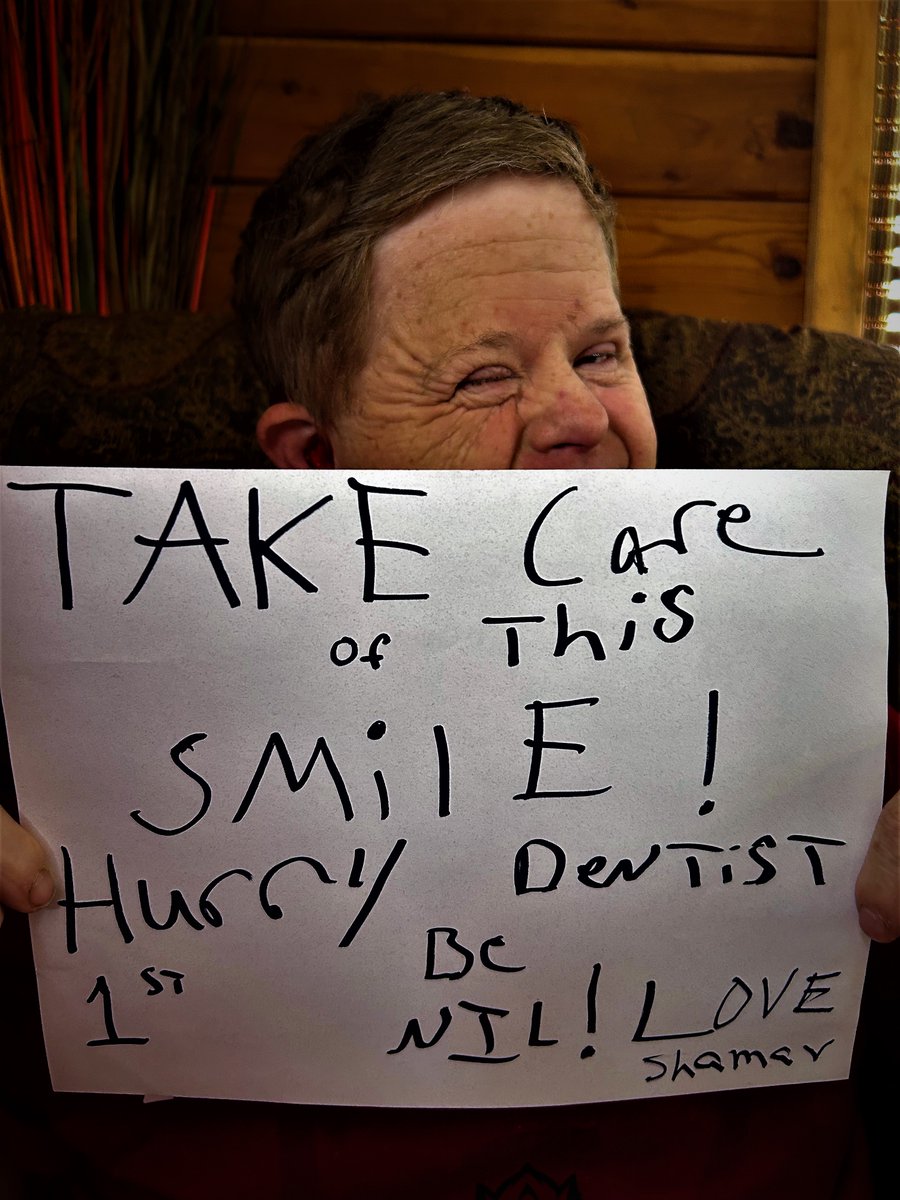 TAKE Care
of This
SMilE!
Hurry DenTiST
1ST Be
NIL! LOVE
Shamar